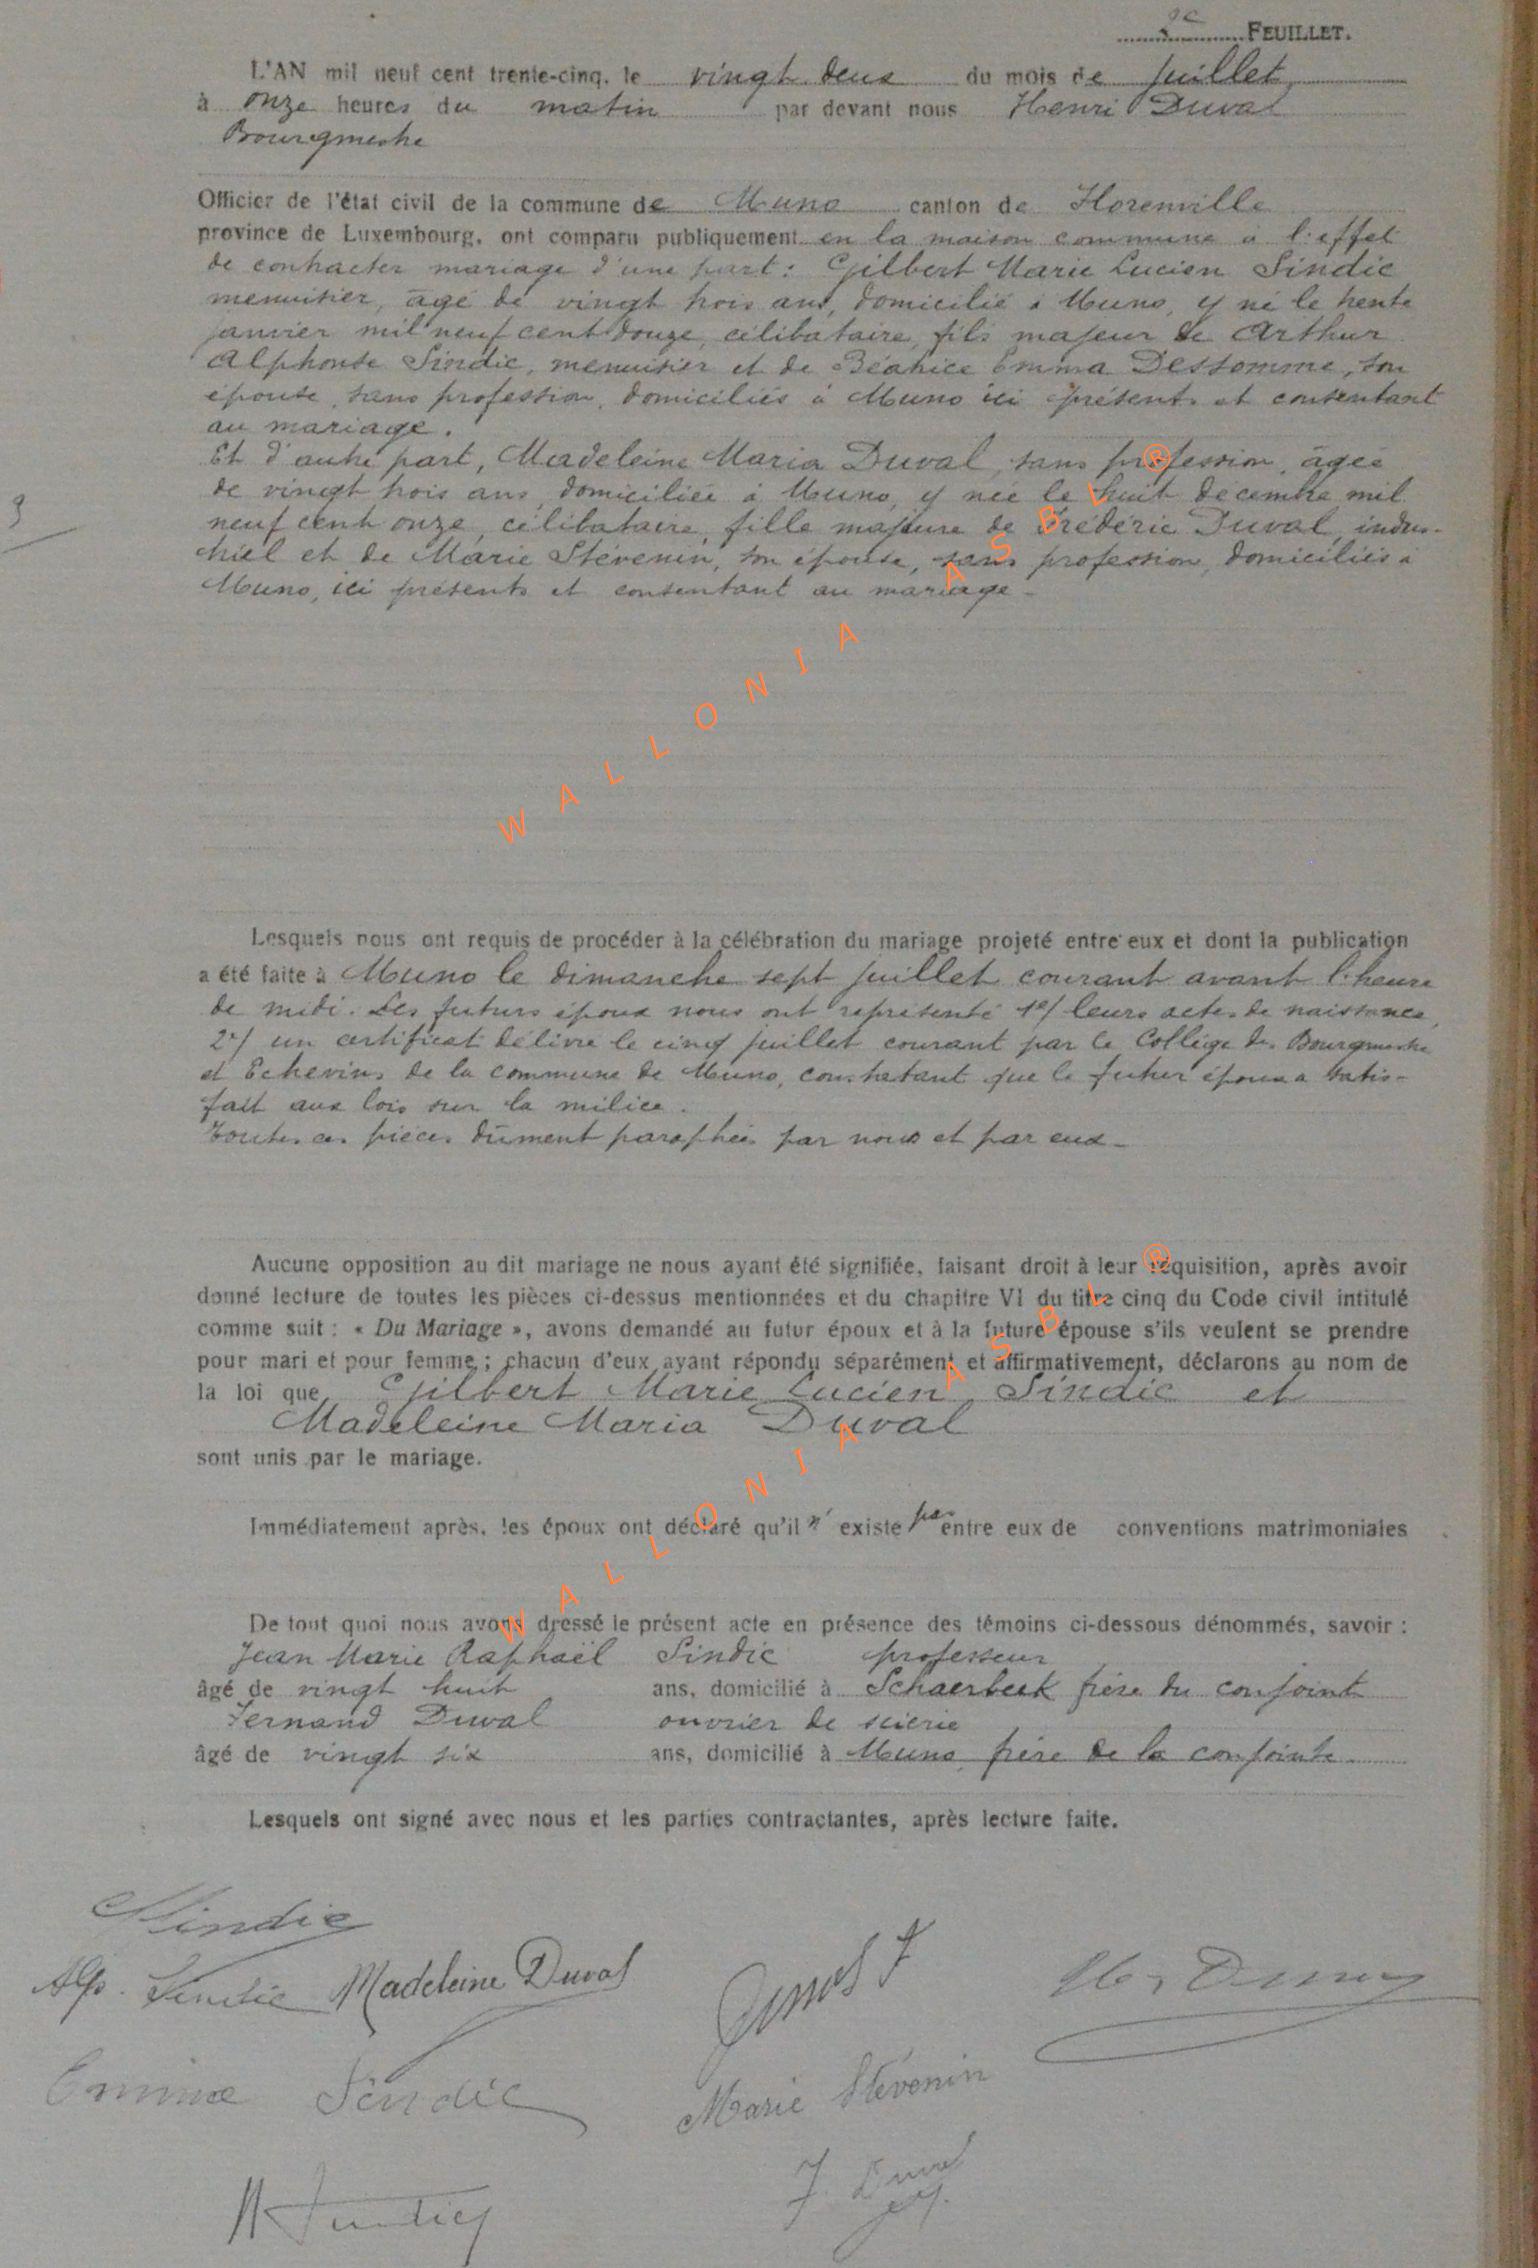 2e FEUILLET.
L'AN mil neuf cent trente-cinq, le vingt deux du mois de juillet
à onze heures du matin par devant nous Henri Duval
Bourgmestre
Officier de l'état civil de la commune de Muno canton de Florenville
province de Luxembourg, ont comparu publiquement en la maison commune à l'effet
de contracter mariage d'une part : Gilbert Marie Lucien Sindic
menuisier, âgé de vingt trois ans, domicilié à Muno, y né le trente
janvier mil neuf cent douze, célibataire, fils majeur de Arthur
Alphonse Sindic, menuisier et de Béatrice Emma Dessomme, son
épouse, sans profession, domiciliés à Muno ici présents et consentant
au mariage.
Et d'autre part, Madeleine Maria Duval, sans profession, âgée
de vingt trois ans, domiciliée à Muno, y née le huit décembre mil
neuf cent onze, célibataire, fille majeure de Frédéric Duval, indus-
triel et de Marie Stévenin, son épouse, sans profession, domiciliés à
Muno, ici présents et consentant au mariage -
3
WALLONIA ASBL ®
Lesquels nous ont requis de procéder à la célébration du mariage projeté entre eux et dont la publication
a été faite à Muno le dimanche sept juillet courant avant l'heure
de midi. Les futurs époux nous ont représenté 1°/ leurs actes de naissance,
2°/ un certificat délivré le cinq juillet courant par le Collège des Bourgmestre
et Echevins de la commune de Muno, constatant que le futur époux a satis-
fait aux lois sur la milice.
Toutes ces pièces dûment paraphées par nous et par eux -
Aucune opposition au dit mariage ne nous ayant été signifiée, faisant droit à leur réquisition, après avoir
donné lecture de toutes les pièces ci-dessus mentionnées et du chapitre VI du titre cinq du Code civil intitulé
comme suit : « Du Mariage », avons demandé au futur époux et à la future épouse s'ils veulent se prendre
pour mari et pour femme ; chacun d'eux ayant répondu séparément et affirmativement, déclarons au nom de
la loi que Gilbert Marie Lucien Sindic et
Madeleine Maria Duval
sont unis par le mariage.
WALLONIA ASBL ®
Immédiatement après, les époux ont déclaré qu'il n'existe pas entre eux de conventions matrimoniales
De tout quoi nous avons dressé le présent acte en présence des témoins ci-dessous dénommés, savoir :
Jean Marie Raphaël Sindic professeur
âgé de vingt huit ans, domicilié à Schaerbeek frère du conjoint
Fernand Duval ouvrier de scierie
âgé de vingt six ans, domicilié à Muno, frère de la conjointe
Lesquels ont signé avec nous et les parties contractantes, après lecture faite.
Sindic
Alp. Sindic Madeleine Duval
Emma Sindic
Marie Stévenin
F. Duval